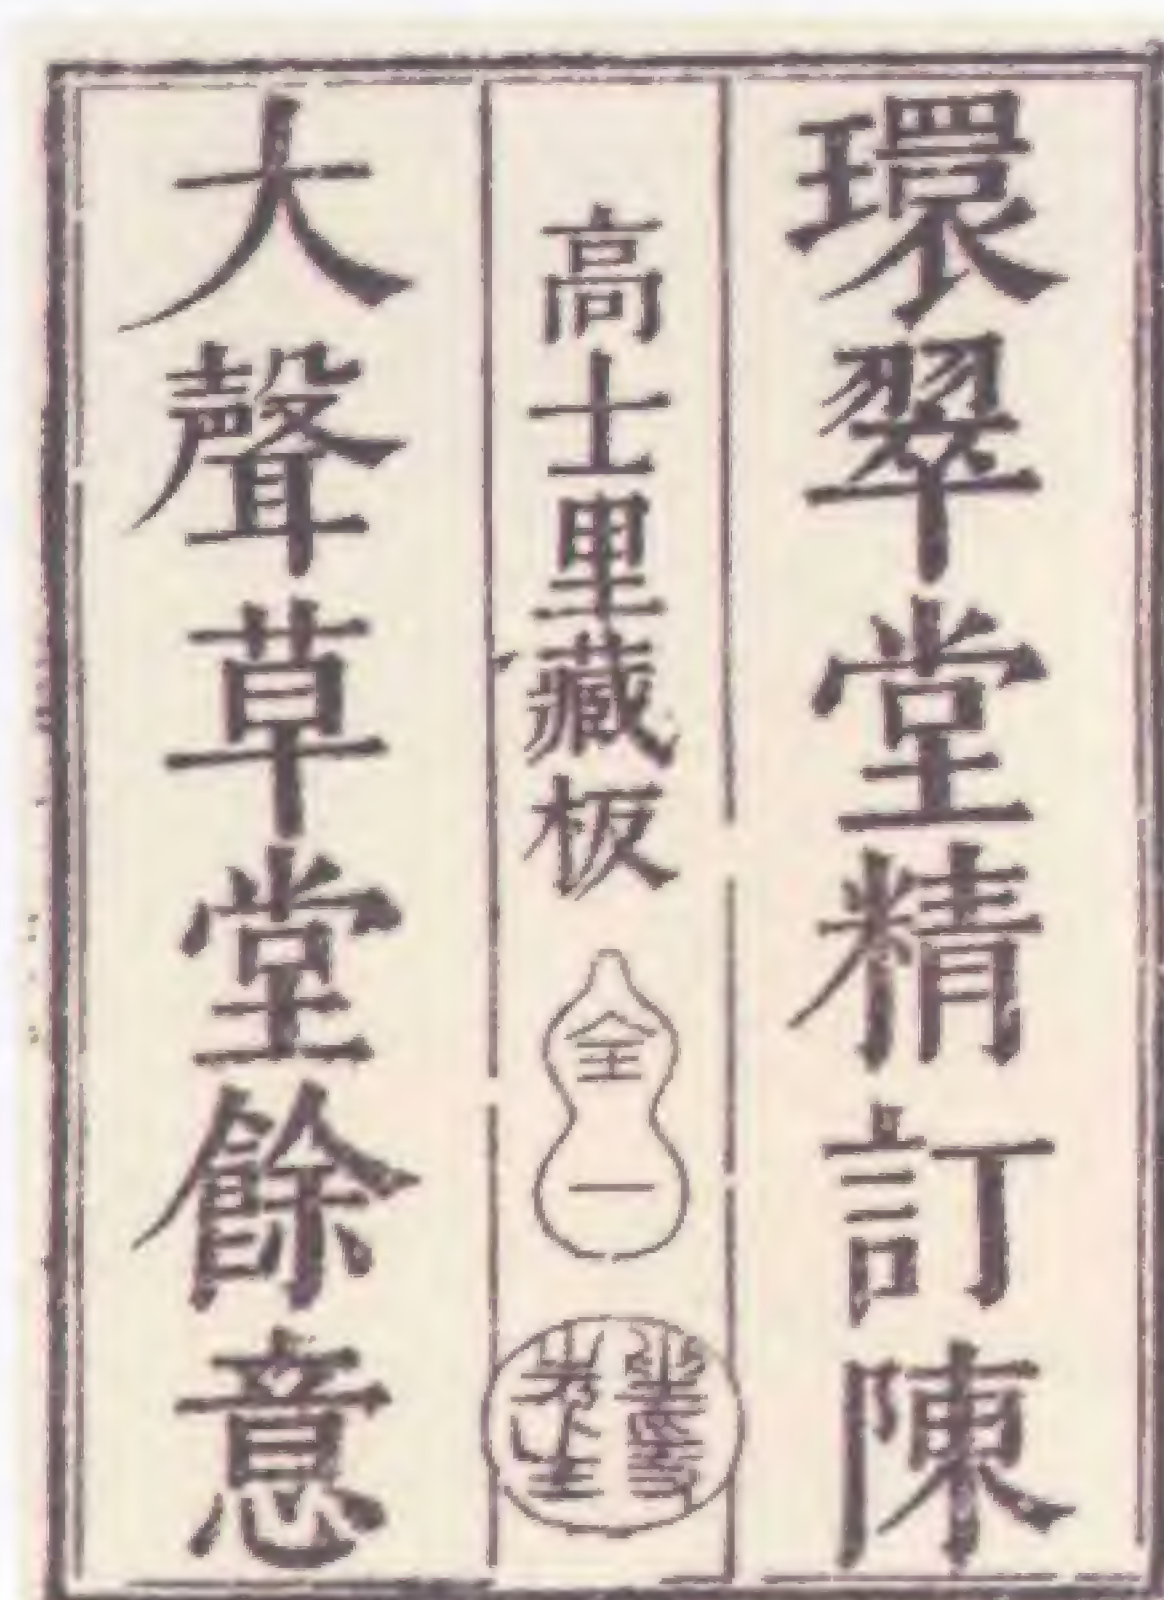 環翠堂精訂陳
高士里藏板
全一
大聲草堂餘意